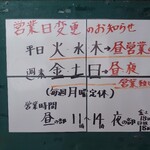 営業日変更のお知らせ
平日 火水木→昼営業
週末 金土日→昼夜
営業
(毎週月曜定休)
営業時間
昼の部 11時〜14時 夜の部